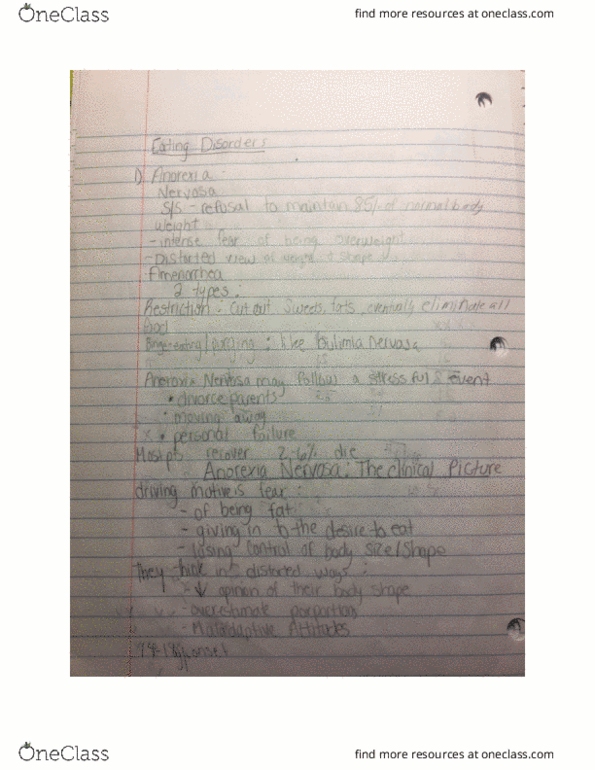 OneClass
find more resources at oneclass.com
Eating Disorders
1) Anorexia
Nervosa
S/S - refusal to maintain 85% of normal body
weight
- intense fear of being overweight
- Distorted view of weight + shape
Amenorrhea
2 types:
Restriction: Cut out sweets, fats, eventually eliminate all
food
Binge-eating/purging: like bulimia nervosa
Anorexia Nervosa may follow a stressful event
• divorce parents
• moving away
• personal failure
Most pts recover 2-6% die
Anorexia Nervosa: The clinical Picture
driving motive is fear:
- of being fat
- giving in to the desire to eat
- losing control of body size/shape
They think in distorted ways:
- ↓ opinion of their body shape
- overestimate
- Maladaptive Attitudes
14-18 onset
OneClass
find more resources at oneclass.com